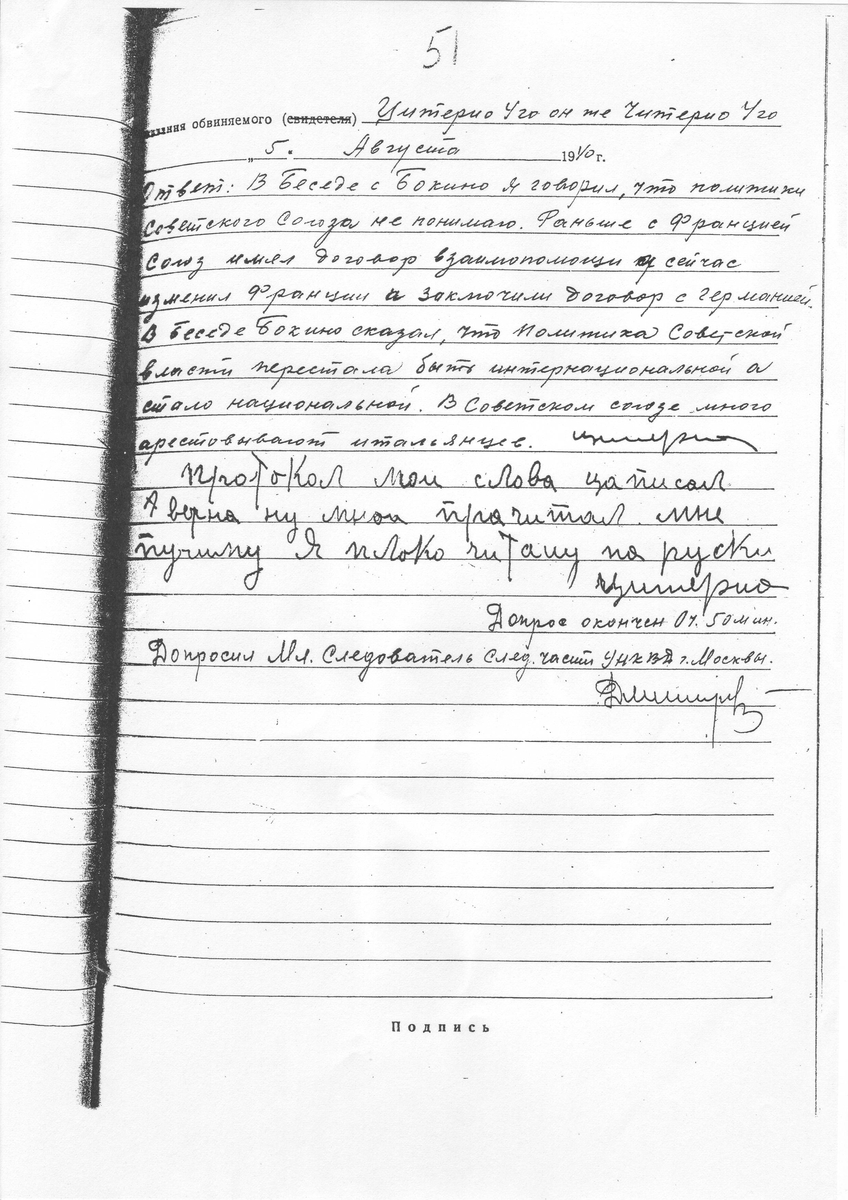 51
ния обвиняемого (свидетеля) Цитерио Уго он же Читерио Уго
„5." Августа 1940 г.
Ответ: В беседе с Бокино я говорил, что политики
Советского Союза не понимаю. Раньше с Францией
Союз имел договор взаимопомощи а сейчас
изменил Франции и заключили договор с Германией.
В беседе Бокино сказал, что политика Советской
власти перестала быть интернациональной а
стало национальной. В Советском союзе много
арестовывают итальянцев. Цитерио
протокол мои слова цаписал
А верна ну мноа прачитал мне
пучиму Я плоко читашу па руски
Цитерио
Допрос окончен 0 ч. 50 мин.
Допросил Мл. Следователь След. части УНКВД г. Москвы.
Подпись